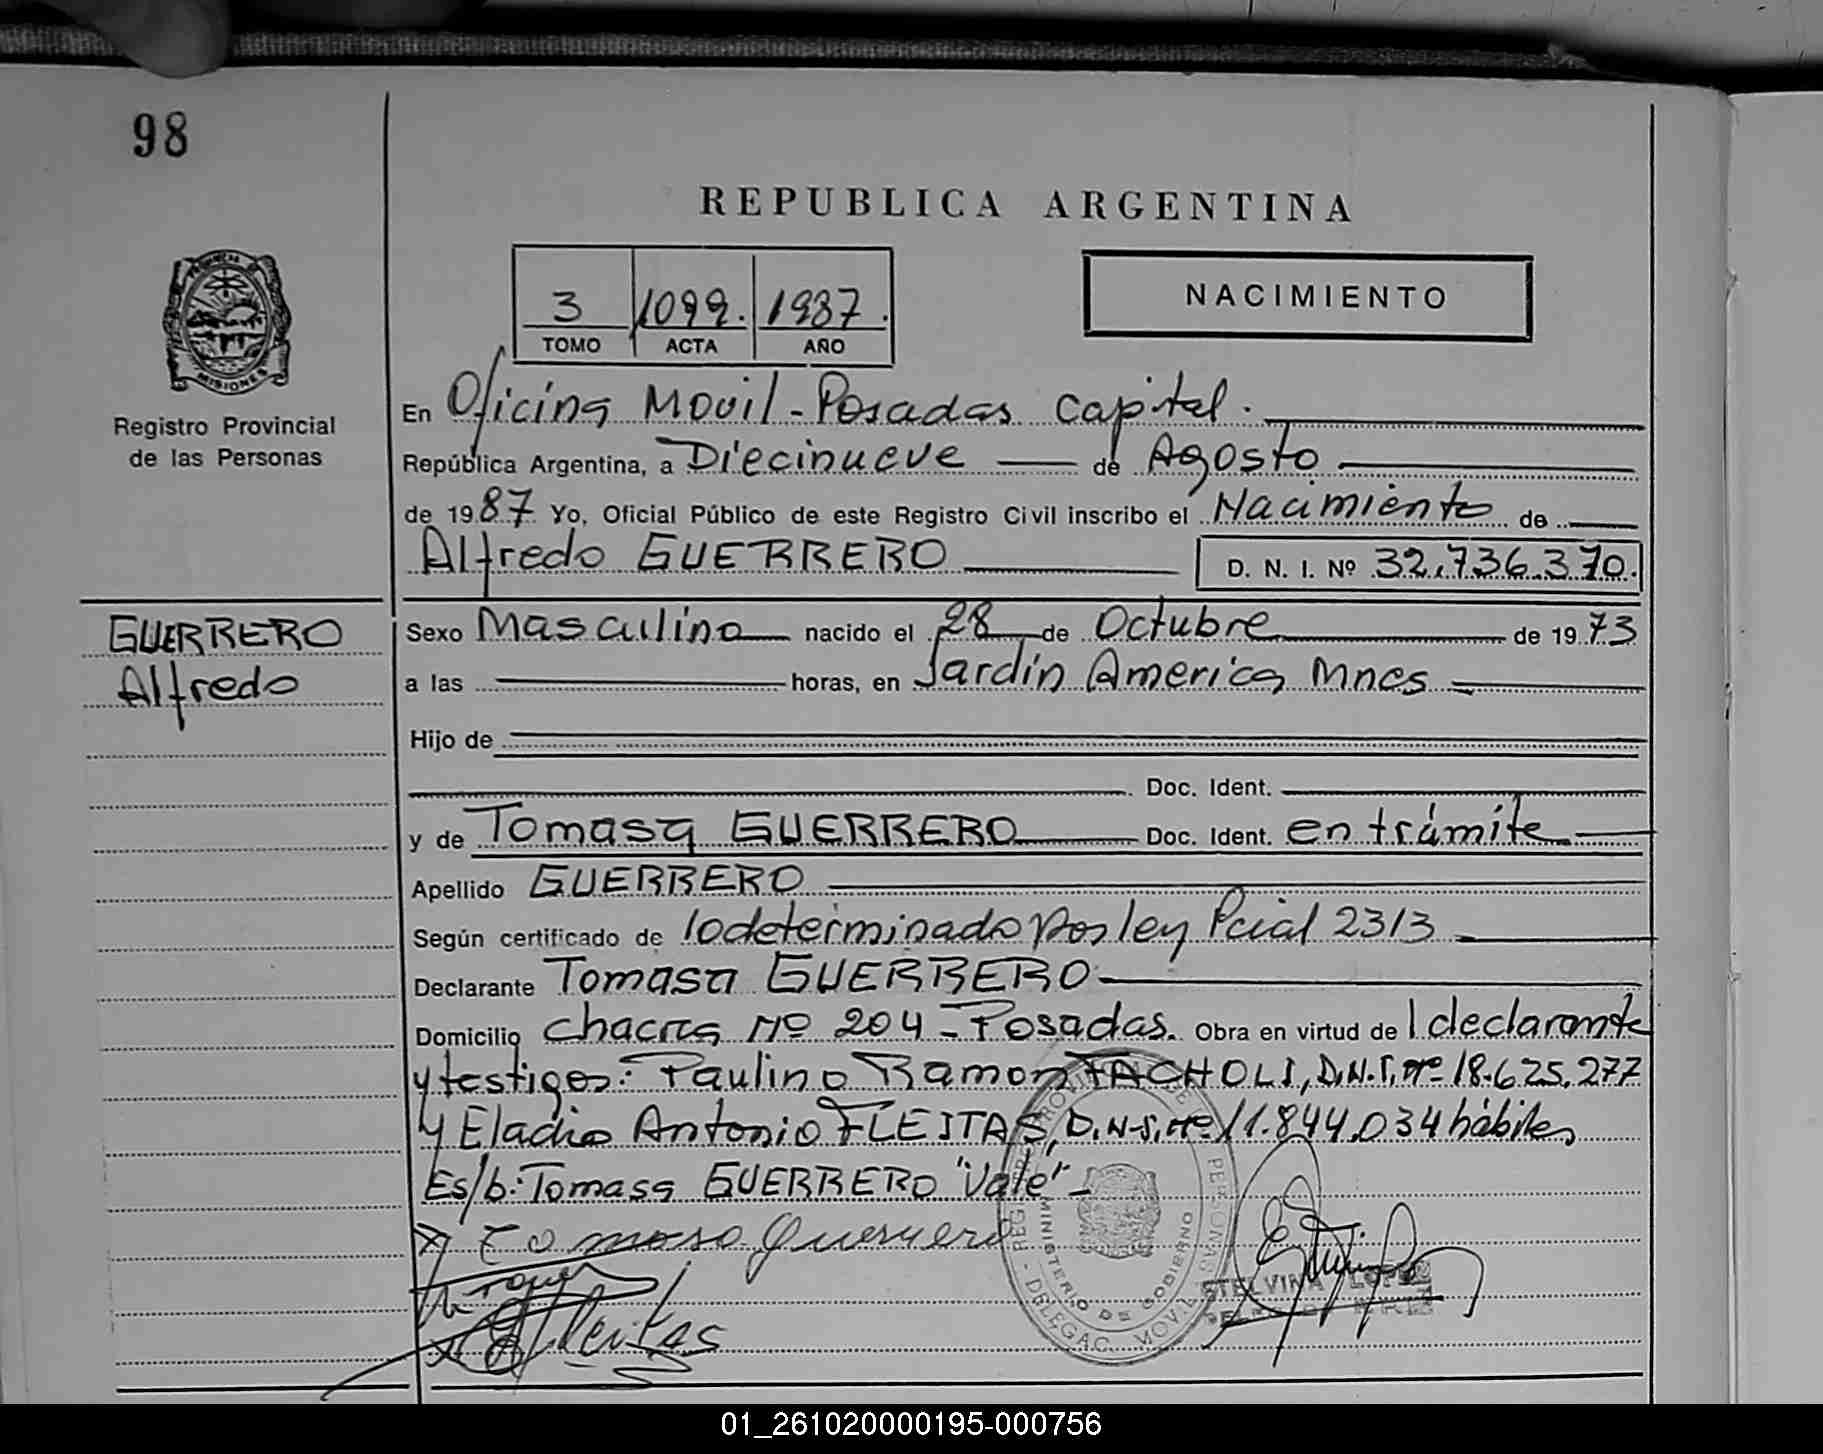 98
REPUBLICA ARGENTINA
3 1099. 1987.
TOMO ACTA AÑO
NACIMIENTO
PROVINCIA DE
MISIONES
Registro Provincial
de las Personas
En Oficina Movil - Posadas Capital.
República Argentina, a Diecinueve de Agosto
de 1987 Yo, Oficial Público de este Registro Civil inscribo el Nacimiento de
Alfredo GUERRERO D. N. I. Nº 32.736.370.
GUERRERO
Alfredo
Sexo Masculino nacido el 28 de Octubre de 1973
a las horas, en Jardin America Mnes
Hijo de
Doc. Ident.
y de Tomasa GUERRERO Doc. Ident. en trámite
Apellido GUERRERO
Según certificado de lo determinado por ley Pcial 2313
Declarante Tomasa GUERRERO
Domicilio chacra Nº 204 - Posadas. Obra en virtud de l declarante
y testigos: Paulino Ramon FACHOLI, D.N.I. Nº 18.625.277
y Eladio Antonio FLEITAS, D.N.I. Nº 11.844.034 hábiles
Es/b: Tomasa GUERRERO "Vale" -
x Tomasa Guerrero
Fleitas
REGISTRO PROVINCIAL DE LAS PERSONAS
MINISTERIO DE GOBIERNO
DELEGAC. MOVIL
ETELVINA LOPEZ
01_261020000195-000756